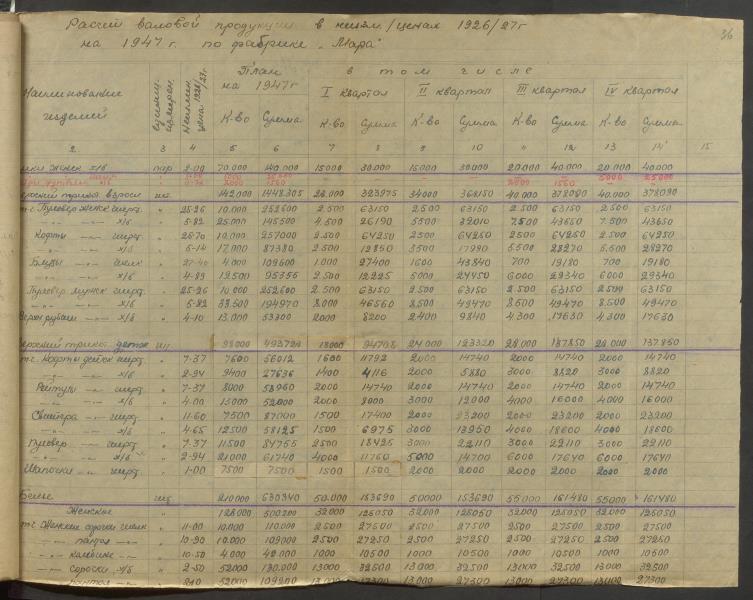 36
Расчет валовой продукции в неизм./ценах 1926/27г
на 1947г. по фабрике „Мара"
Наименование изделий единиц. измерен. Неизмен. цена 1926/27г. План на 1947г в том числе
I квартал II квартал III квартал IV квартал
К-во Сумма К-во Сумма К-во Сумма К-во Сумма К-во Сумма
2 3 4 5 6 7 8 9 10 " 12 13 14 15
женск х/б пар 2-00 70.000 140.000 15000 30.000 15000 30000 20.000 40.000 20.000 40.000
5000 25000
2000 1560
трико. взросл шт 142.000 1448.305 28.000 323975 34000 368150 40.000 378080 40.000 378090
т-с Пуловер женск шерст. " 25-26 10.000 252600 2.500 63150 2500 63150 2.500 63150 2.500 63150
-"- -"- х/б " 5-82 25.000 145500 4.500 26190 5.500 32010 7.500 43650 7.500 43650
Кофты -"- шерст. " 25-70 10.000 257000 2.500 64250 2500 64250 2.500 64250 2.500 64250
-"- -"- х/б " 5-14 17.000 87380 2.500 12850 3500 17990 5.500 28270 5.500 28270
Блузы -"- шелк " 27-40 4.000 109600 1.000 27400 1600 43840 700 19180 700 19180
-"- -"- х/б " 4-89 19500 95355 2.500 12225 5000 24450 6000 29340 6000 29340
Пуловер мужск шерст. " 25-26 10.000 252600 2.500 63150 2.500 63150 2.500 63150 2.500 63150
-"- -"- х/б " 5-82 33.500 194970 8.000 46560 8.500 49470 8.500 49470 8.500 49470
Верхн рубаш -"- х/б " 4-10 13.000 53300 2000 8200 2400 9840 4.300 17630 4.300 17630
трико. детск шт 98000 492724 18000 94708 24.000 123320 28.000 137850 28.000 137850
т-с Кофты детск шерст. " 7-37 7600 56012 1600 11792 2000 14740 2000 14740 2000 14740
-"- -"- х/б " 2-94 9400 27636 1400 4116 2000 5880 3000 8820 3000 8820
Рейтузы -"- шерст " 7-37 8000 58960 2000 14740 2000 14740 2000 14740 2000 14740
-"- -"- х/б " 4-00 13000 52000 2000 8000 3000 12000 4000 16000 4000 16000
Свитера -"- шерст. " 11-60 7500 87000 1500 17400 2000 23200 2000 23200 2000 23200
-"- -"- х/б " 4-65 12500 58125 1500 6975 3000 13950 4000 18600 4000 18600
Пуловер -"- шерст. " 7-37 11500 84755 2500 18425 3000 22110 3000 22110 3000 22110
-"- -"- х/б " 2-94 21000 61740 4000 11760 5000 14700 6000 17640 6000 17640
Шапочки -"- шерст. " 1-00 7500 7500 1500 1500 2000 2000 2000 2000 2000 2000
Белье шт 210000 630340 50.000 153690 50000 153690 55000 161480 55000 161480
Женское " 128.000 500200 32000 125050 32.000 125050 32.000 125050 32.000 125050
т-с Женские сорочки шелк " 11-00 10.000 110.000 2500 27500 2500 27500 2500 27500 2500 27500
-"- пантал -"- " 10-90 10.000 109000 2500 27250 2500 27250 2500 27250 2500 27250
-"- комбине -"- " 10-50 4.000 42.000 1000 10500 1000 10500 1000 10500 1000 10500
-"- сорочки х/б " 2-50 52000 130.000 13000 32500 13000 32500 13000 32500 13000 32500
пантал -"- 2-10 52000 109200 13.000 27300 13.000 27300 13000 27300 13000 27300